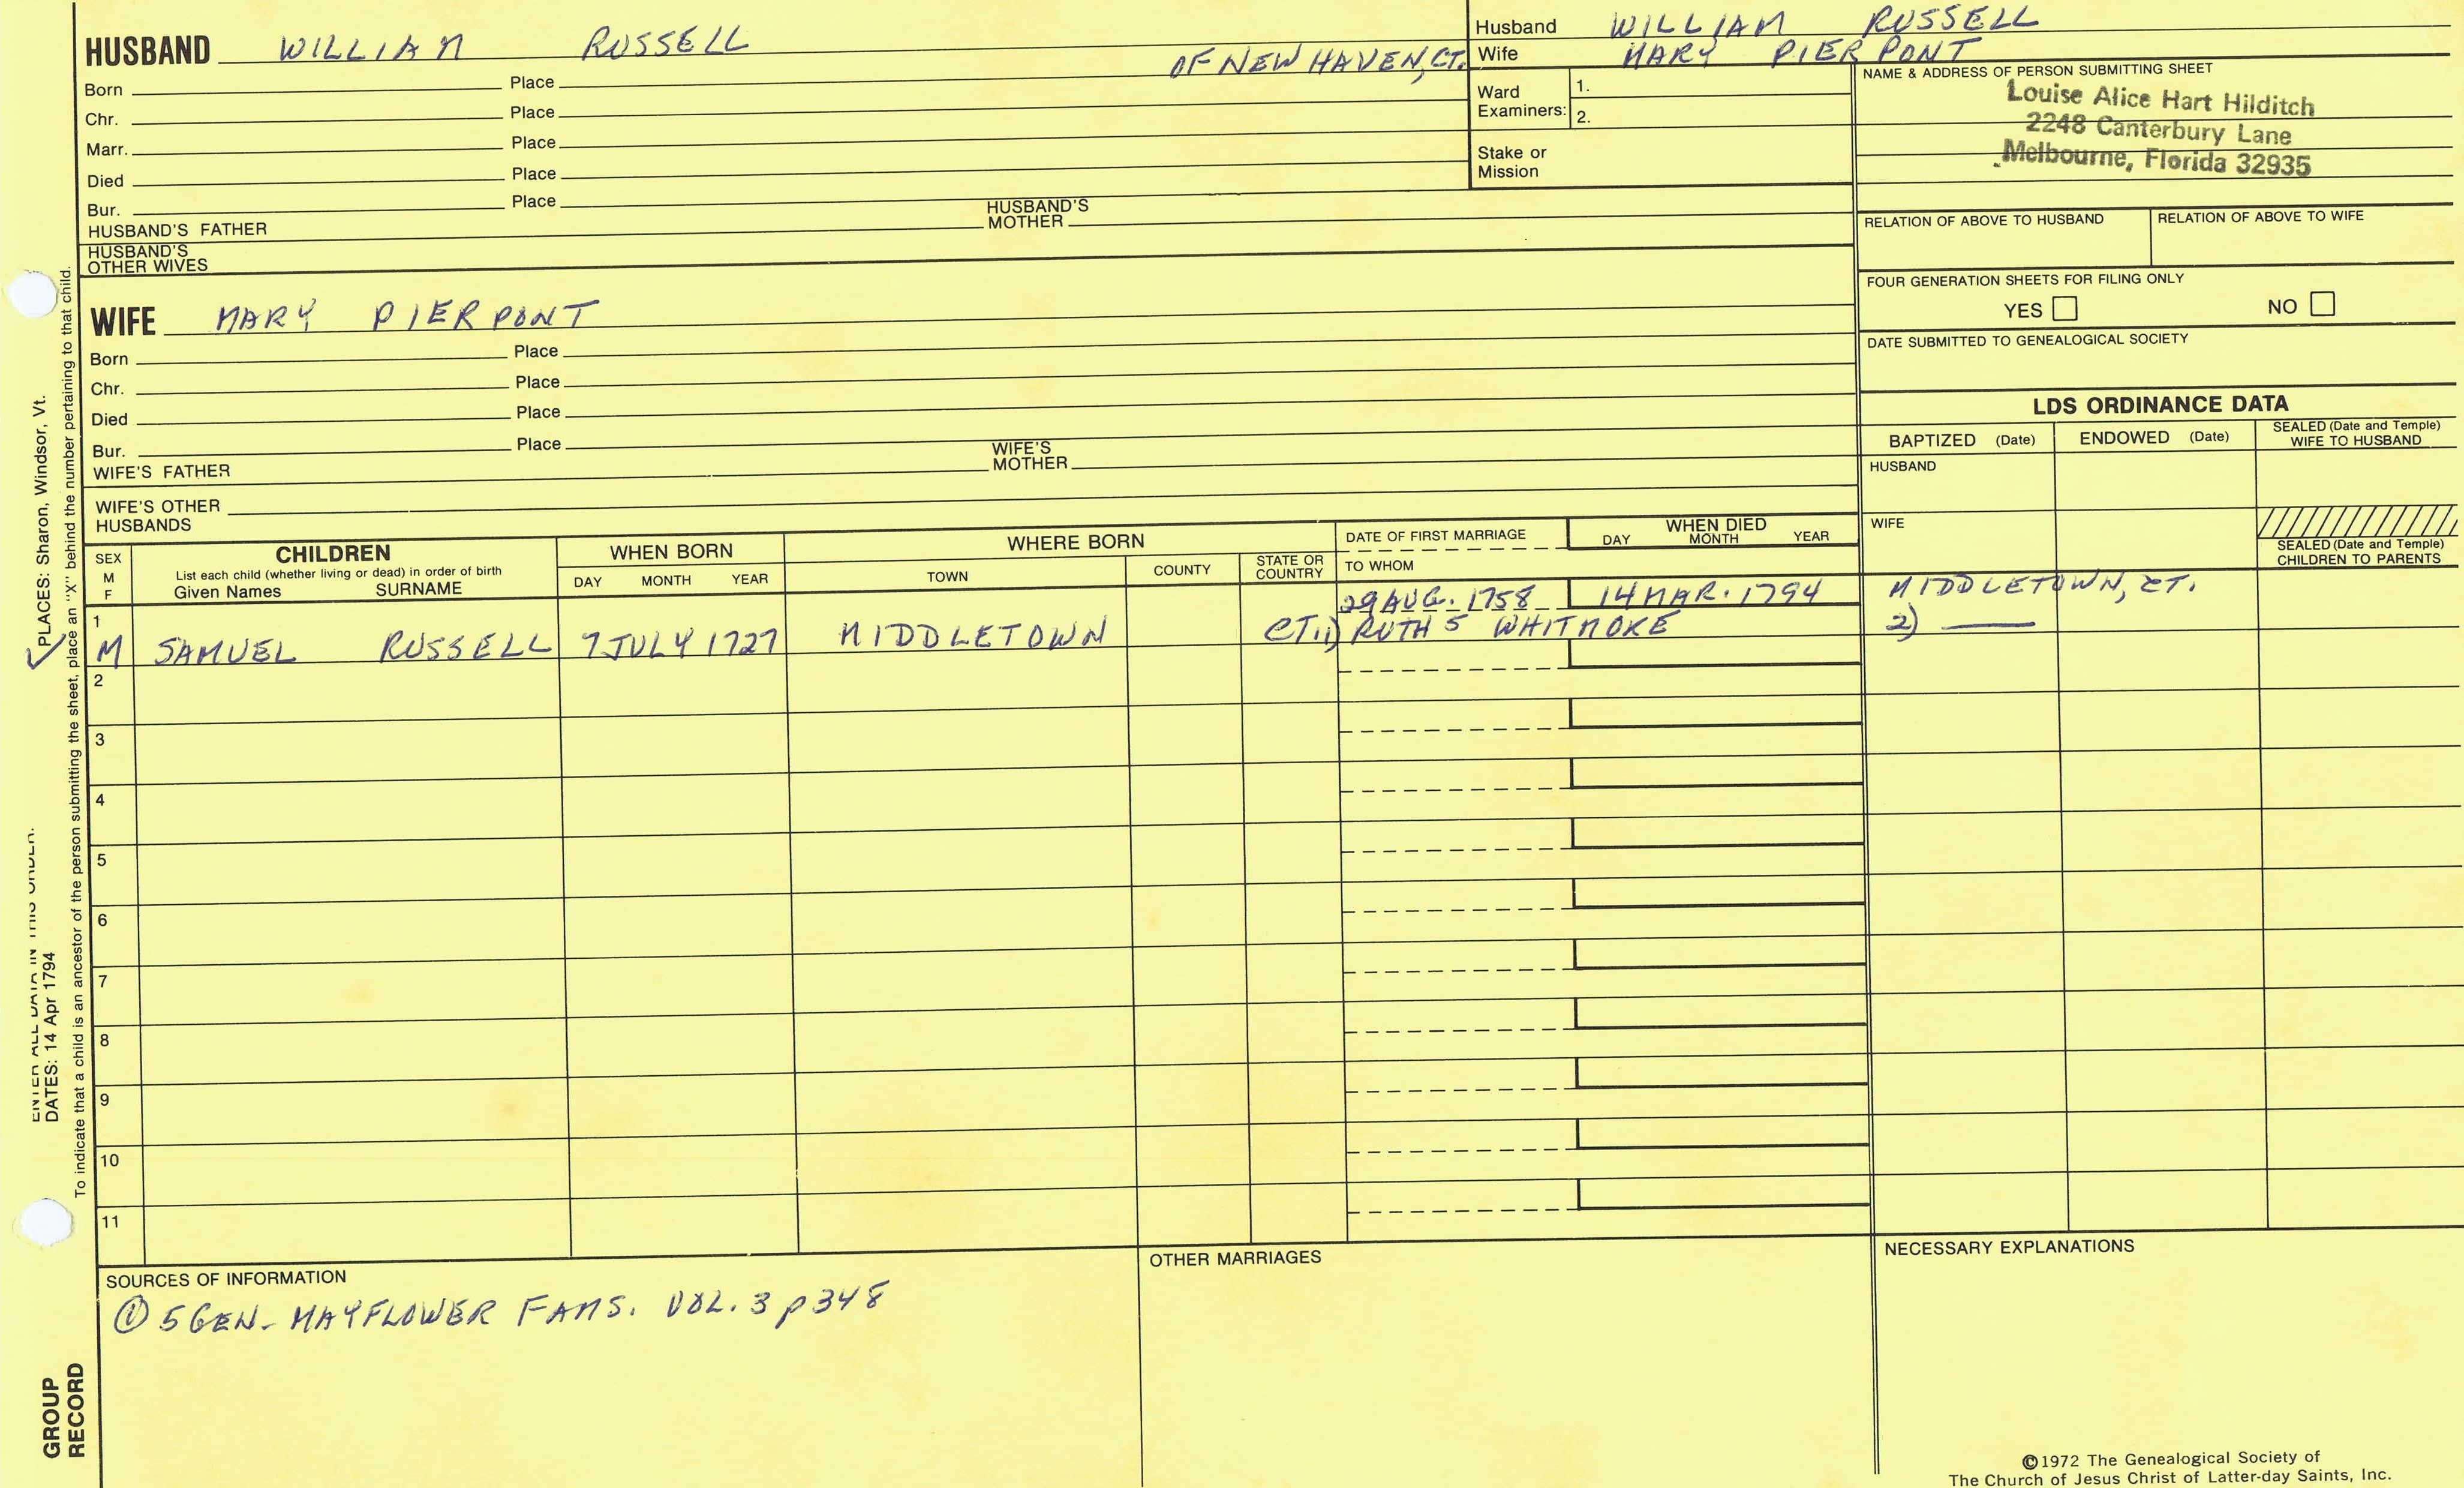 HUSBAND WILLIAM RUSSELL
OF NEW HAVEN, CT.
Born Place
Chr. Place
Marr. Place
Died Place
Bur. Place
HUSBAND'S FATHER HUSBAND'S MOTHER
HUSBAND'S OTHER WIVES
Husband WILLIAM RUSSELL
Wife MARY PIERPONT
Ward Examiners: 1.
2.
Stake or Mission
NAME & ADDRESS OF PERSON SUBMITTING SHEET
Louise Alice Hart Hilditch
2248 Canterbury Lane
Melbourne, Florida 32935
RELATION OF ABOVE TO HUSBAND RELATION OF ABOVE TO WIFE
FOUR GENERATION SHEETS FOR FILING ONLY
YES NO
DATE SUBMITTED TO GENEALOGICAL SOCIETY
WIFE MARY PIERPONT
Born Place
Chr. Place
Died Place
Bur. Place
WIFE'S FATHER WIFE'S MOTHER
WIFE'S OTHER HUSBANDS
LDS ORDINANCE DATA
BAPTIZED (Date) ENDOWED (Date) SEALED (Date and Temple) WIFE TO HUSBAND
HUSBAND
WIFE
SEALED (Date and Temple) CHILDREN TO PARENTS
SEX M F
CHILDREN
List each child (whether living or dead) in order of birth
Given Names SURNAME
WHEN BORN
DAY MONTH YEAR
WHERE BORN
TOWN COUNTY STATE OR COUNTRY
DATE OF FIRST MARRIAGE
TO WHOM
WHEN DIED
DAY MONTH YEAR
1 29 AUG. 1758 14 MAR. 1794 MIDDLETOWN, CT.
M SAMUEL RUSSELL 7 JULY 1727 MIDDLETOWN CT. 1) RUTH 5 WHITMORE 2) —
2
3
4
5
6
7
8
9
10
11
SOURCES OF INFORMATION
① 5 GEN- MAYFLOWER FAMS. VOL. 3 p 348
OTHER MARRIAGES
NECESSARY EXPLANATIONS
©1972 The Genealogical Society of
The Church of Jesus Christ of Latter-day Saints, Inc.
ENTER ALL DATA IN THIS ORDER:
DATES: 14 Apr 1794
PLACES: Sharon, Windsor, Vt.
To indicate that a child is an ancestor of the person submitting the sheet, place an "X" behind the number pertaining to that child.
GROUP
RECORD